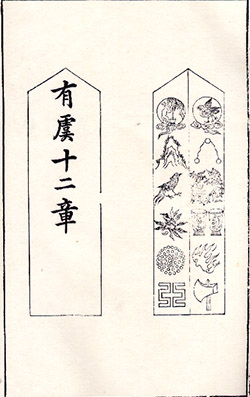 有虞十二章